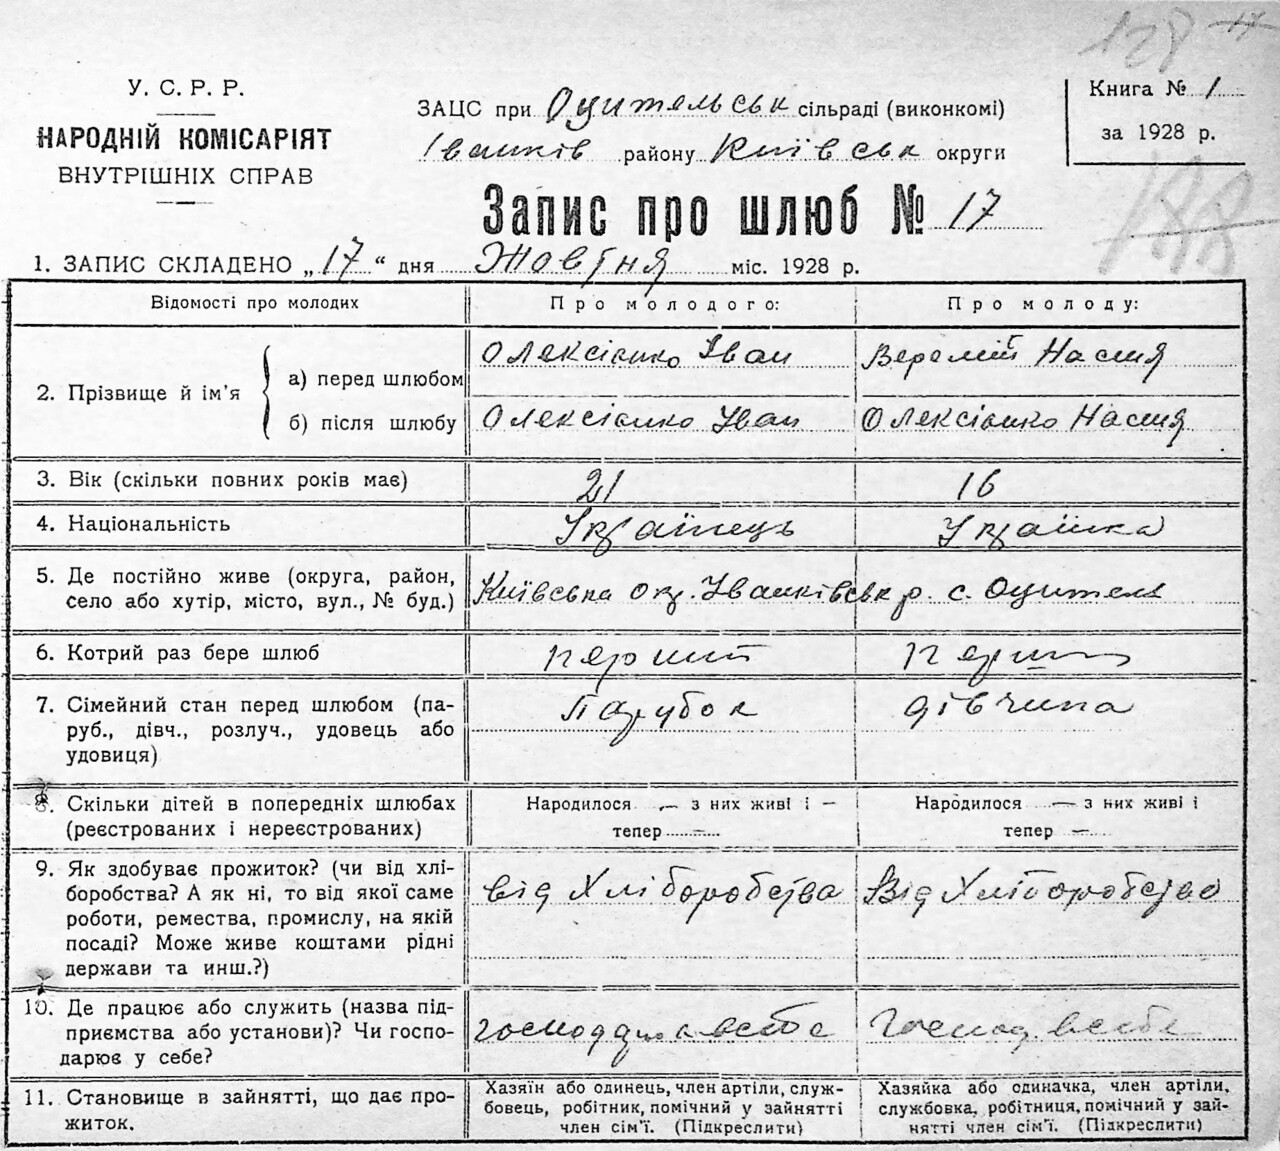 128 17
У. С. Р. Р.
НАРОДНІЙ КОМІСАРІЯТ
ВНУТРІШНІХ СПРАВ
ЗАЦС при Оцительськ сільраді (виконкомі)
Іванків району Київськ округи
Книга № 1
за 1928 р.
Запис про шлюб № 17
188
1. ЗАПИС СКЛАДЕНО „17“ дня Жовтня міс. 1928 р.
Відомості про молодих
Про молодого:
Про молоду:
2. Прізвище й ім’я
а) перед шлюбом
Олексієнко Іван
Веремій Настя
б) після шлюбу
Олексієнко Іван
Олексієнко Настя
3. Вік (скільки повних років має)
21
16
4. Національність
Українець
Українка
5. Де постійно живе (округа, район,
село або хутір, місто, вул., № буд.)
Київська окр. Іванківськ р. с. Оцитель
6. Котрий раз бере шлюб
перший
перш
7. Сімейний стан перед шлюбом (па-
руб., дівч., розлуч., удовець або
удовиця)
Парубок
дівчина
8. Скільки дітей в попередніх шлюбах
(реєстрованих і нереєстрованих)
Народилося — з них живі і —
тепер —
Народилося — з них живі і
тепер —
9. Як здобуває прожиток? (чи від хлі-
боробства? А як ні, то від якої саме
роботи, ремества, промислу, на якій
посаді? Може живе коштами рідні
держави та инш.?)
від Хліборобства
Від Хліборобства
10. Де працює або служить (назва під-
приємства або установи)? Чи госпо-
дарює у себе?
Господ в себе
11. Становище в зайнятті, що дає про-
житок.
Хазяїн або одинець, член артіли, служ-
бовець, робітник, помічний у зайнятті
член сім’ї. (Підкреслити)
Хазяйка або одиначка, член артіли,
службовка, робітниця, помічний у зай-
нятті член сім’ї. (Підкреслити)